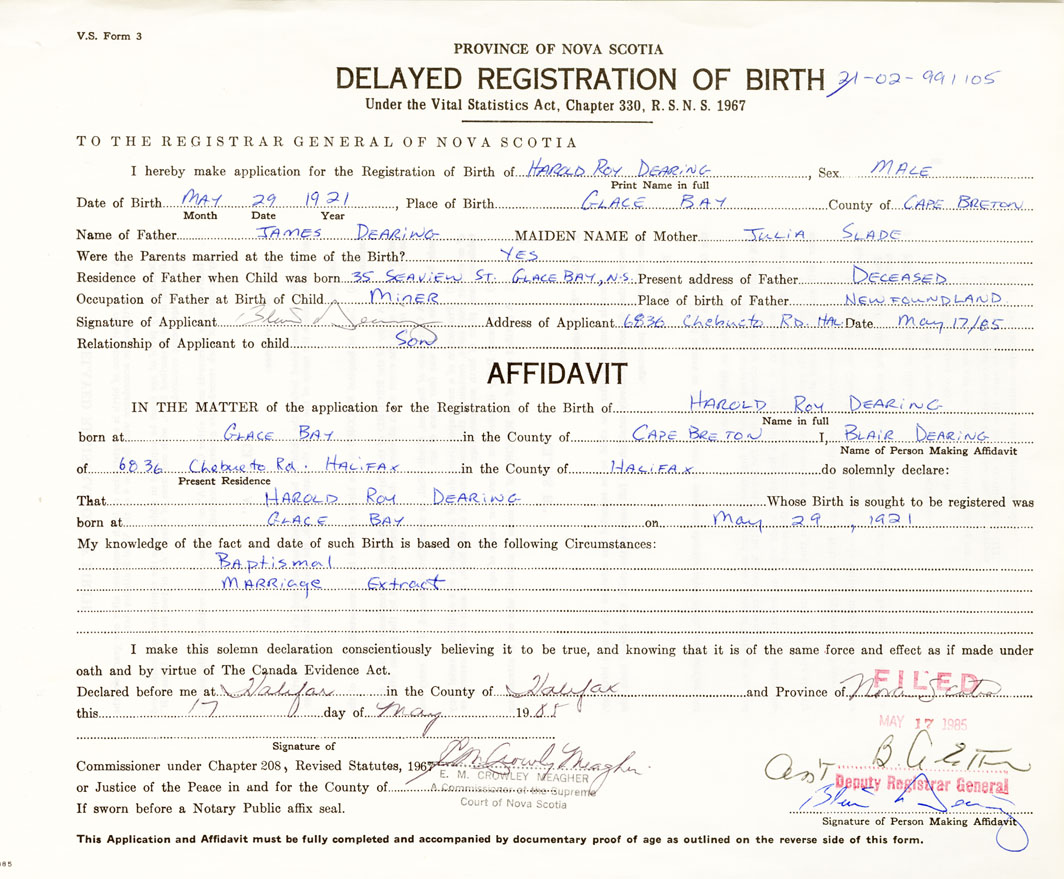 V.S. Form 3
PROVINCE OF NOVA SCOTIA
DELAYED REGISTRATION OF BIRTH 21-02-991105
Under the Vital Statistics Act, Chapter 330, R.S.N.S. 1967
TO THE REGISTRAR GENERAL OF NOVA SCOTIA
I hereby make application for the Registration of Birth of HAROLD ROY DEARING, Sex MALE
Print Name in full
Date of Birth MAY 29 1921, Place of Birth GLACE BAY County of CAPE BRETON
Month Date Year
Name of Father JAMES DEARING MAIDEN NAME of Mother JULIA SLADE
Were the Parents married at the time of the Birth? YES
Residence of Father when Child was born 35 SEAVIEW ST. GLACE BAY, N.S. Present address of Father DECEASED
Occupation of Father at Birth of Child MINER Place of birth of Father NEWFOUNDLAND
Signature of Applicant Blair Dearing Address of Applicant 6836 Chebucto Rd. HAL. Date May 17/85
Relationship of Applicant to child Son
AFFIDAVIT
IN THE MATTER of the application for the Registration of the Birth of HAROLD ROY DEARING
Name in full
born at GLACE BAY in the County of CAPE BRETON I, BLAIR DEARING
Name of Person Making Affidavit
of 6836 Chebucto Rd. HALIFAX in the County of HALIFAX do solemnly declare:
Present Residence
That HAROLD ROY DEARING Whose Birth is sought to be registered was
born at GLACE BAY on May 29, 1921
My knowledge of the fact and date of such Birth is based on the following Circumstances:
Baptismal
MARRiage Extract
I make this solemn declaration conscientiously believing it to be true, and knowing that it is of the same force and effect as if made under
oath and by virtue of The Canada Evidence Act.
Declared before me at Halifax in the County of Halifax and Province of Nova Scotia
FILED
this 17 day of May 1985
MAY 17 1985
Signature of
Commissioner under Chapter 208, Revised Statutes, 1967 E M Crowly Meagher
E. M. CROWLEY MEAGHER
or Justice of the Peace in and for the County of
A Commissioner of the Supreme
Court of Nova Scotia
Asst
Deputy Registrar General
If sworn before a Notary Public affix seal.
Blair Dearing
Signature of Person Making Affidavit
This Application and Affidavit must be fully completed and accompanied by documentary proof of age as outlined on the reverse side of this form.